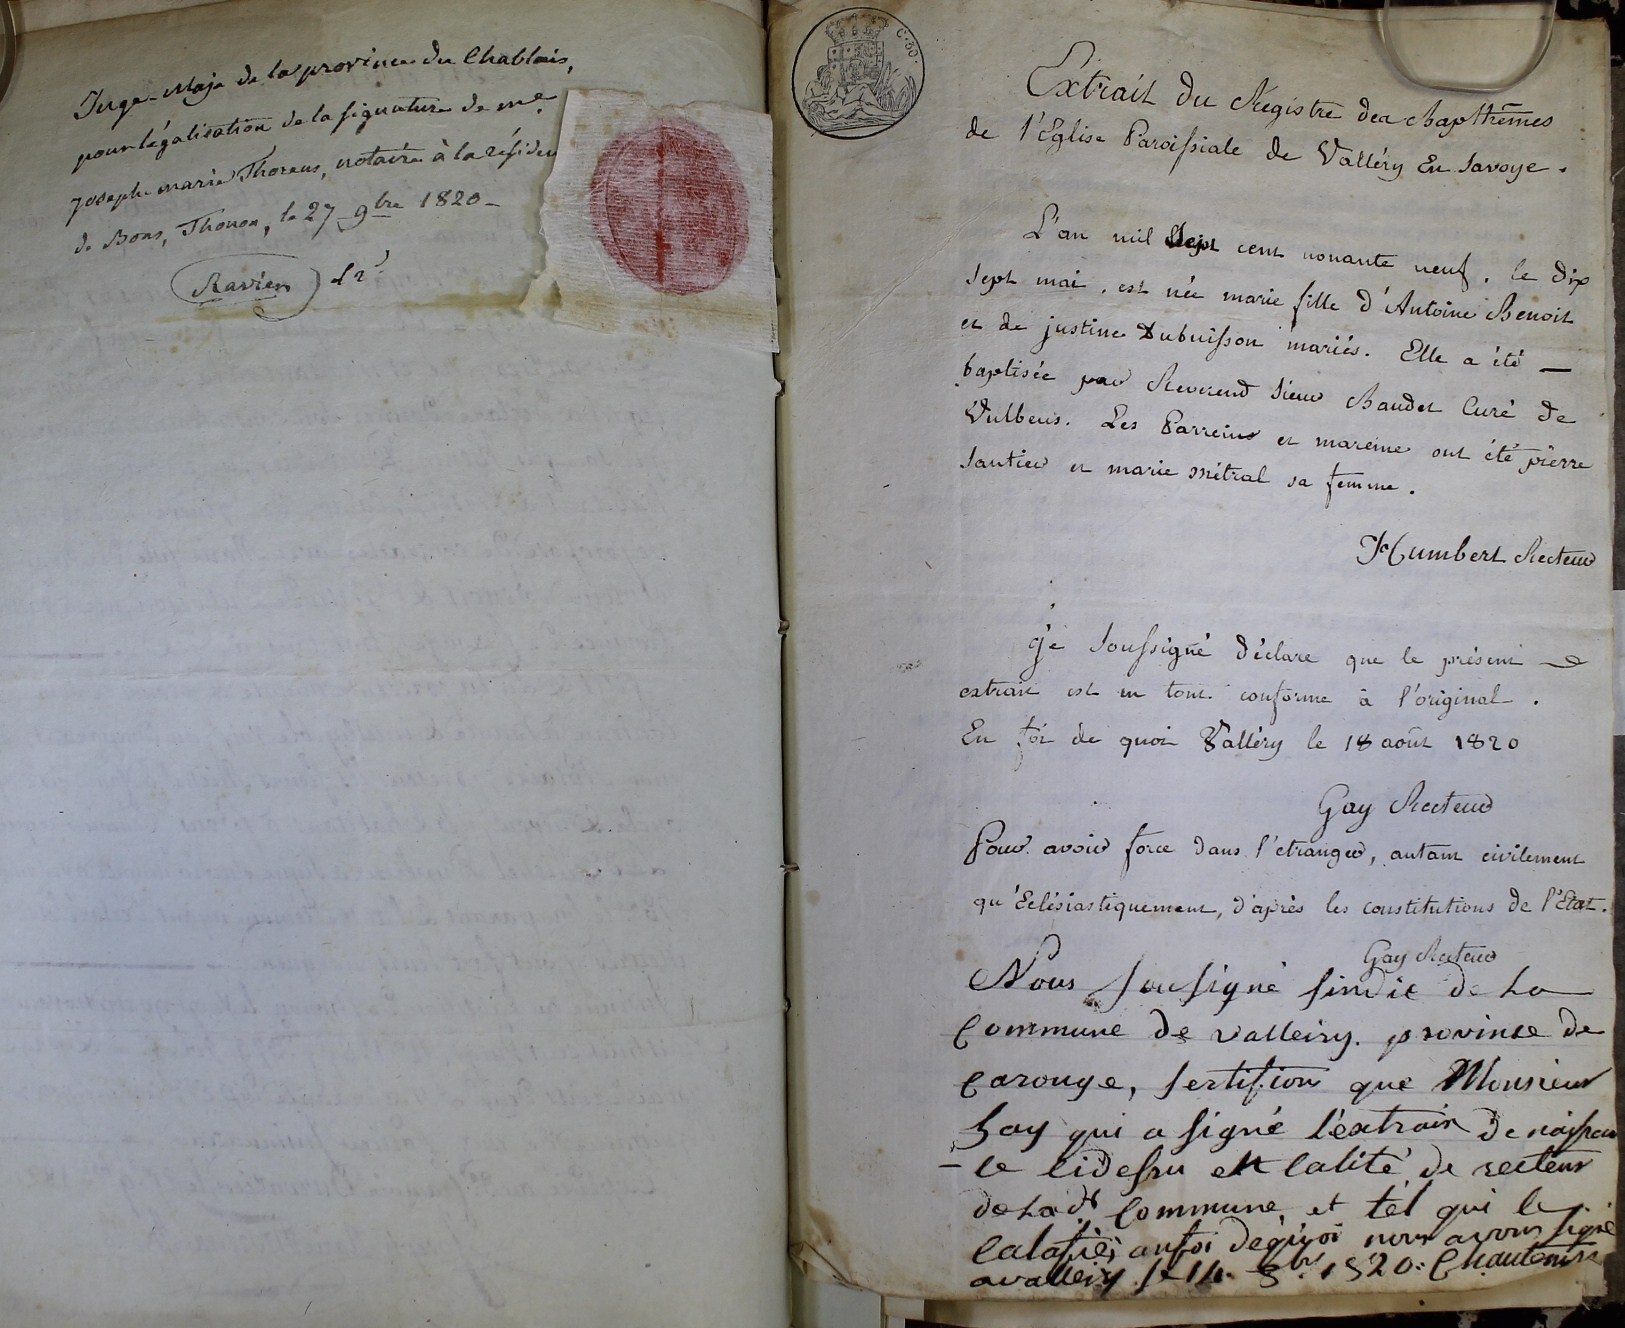 Juge-Maje de la province du Chablais,
pour légalisation de la signature de me
joseph marie Thorens, notaire à la résiden
de Bons, Thonon, le 27 9bre 1820 -
Ravier
C. 30.
Extrait du Régistre des Bapthêmes
de l'Eglise Paroissiale de Valléry En Savoye.
L'an mil Sept cent nonante neuf. le dix
sept mai, est née marie fille d'Antoine Benoit
et de justine Dubuisson mariés. Elle a été —
baptisée par Reverend Sieur Baudet Curé de
Vulbens. Les Parreins et mareine ont été pierre
Sautier et marie métral sa femme.
Humbert Recteur
Je Soussigné déclare que le présent
extrait est en tout conforme à l'original.
En foi de quoi Valléry le 18 août 1820
Gay Recteur
Pour avoir force dans l'etranger, autant civilement
qu'Eclésiastiquement, d'après les constitutions de l'Etat.
Gay Recteur
Nous sousigné sindic de La
Commune de valleiry. province de
Carouge, sertifion que Monsieur
Gay qui a signé l'extrait de naissan
- ce cidessu est calité de recteur
de La dt Commune et tél qui le
calafiéi anfoi dequoi nous avons signé
a valleiry 1820.